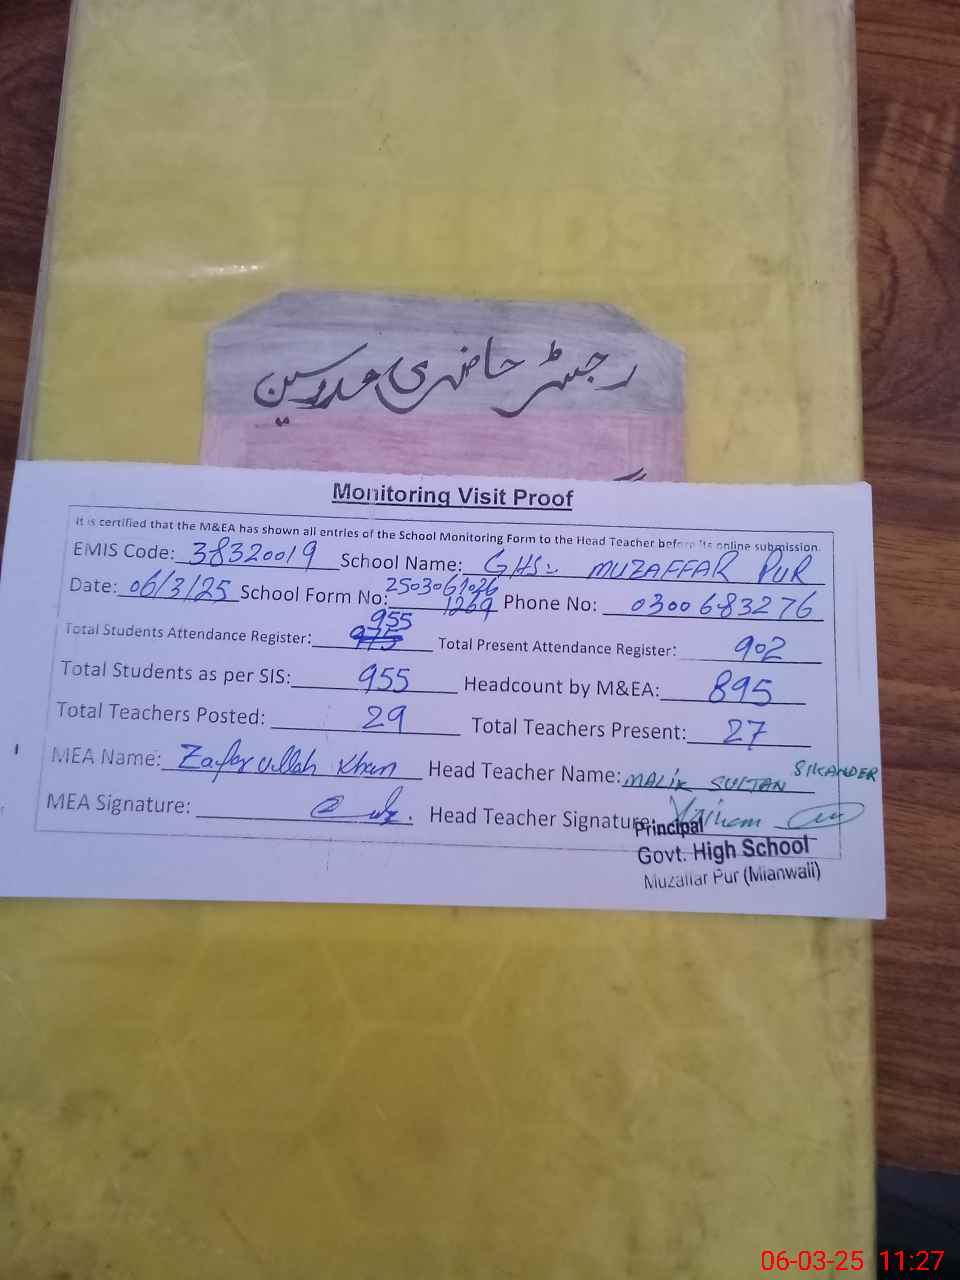 رجسٹر حاضری مدرسین
Monitoring Visit Proof
It is certified that the M&EA has shown all entries of the School Monitoring Form to the Head Teacher before its online submission.
EMIS Code: 38320019 School Name: GHS MUZAFFAR PUR
Date: 06/3/25 School Form No: 2503061026 1269 Phone No: 0300683276
Total Students Attendance Register: 955 975 Total Present Attendance Register: 902
Total Students as per SIS: 955 Headcount by M&EA: 895
Total Teachers Posted: 29 Total Teachers Present: 27
MEA Name: Zafar ullah Khan Head Teacher Name: MALIK SULTAN SIKANDER
MEA Signature: Head Teacher Signature:
Principal
Govt. High School
Muzaffar Pur (Mianwali)
06-03-25 11:27